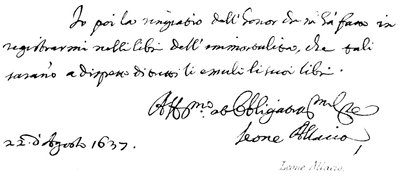 Io poi la ringratio dell'honor che mi hà fatto in
registrarmi nelli libri dell'immortalità, che tali
saranno a dispetto di tutti li emuli li suoi libri.
Aff.mo et Obligatiss.mo Ser.re
Leone Allacio,
22 d'Agosto 1637.
Leone Allacio.